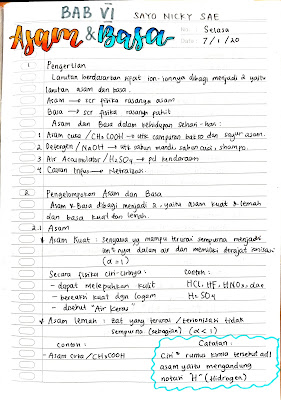 BAB VI SAYO NICKY SAE
Asam & Basa
No. Selasa
Date. 7/1/20
1. Pengertian
Larutan berdasarkan sifat ion-ionnya dibagi menjadi 2 yaitu
larutan asam dan basa.
Asam → scr fisika rasanya asam
Basa → scr fisika rasanya pahit
Asam dan Basa dalam kehidupan sehari-hari:
1 Asam cuka / CH3COOH → utk campuran bakso dan sayur asam.
2 Detergen / NaOH → utk sabun mandi, sabun cuci, shampo.
3 Air Accumulator / H2SO4 → pd kendaraan
4 Cairan Infus → Netralisir.
2. Pengelompokan Asam dan Basa
Asam & Basa dibagi menjadi 2, yaitu asam kuat & lemah
dan basa kuat dan lemah.
2.1 Asam
* Asam kuat : Senyawa yg mampu terurai sempurna menjadi
ion²nya dalam air dan memiliki derajat ionisasi
(α = 1)
Secara fisika ciri-cirinya: contoh:
- dapat melepuhkan kulit HCl, HF, HNO3, dae
- bereaksi kuat dgn logam H2SO4
- disebut "Air keras"
* Asam lemah : zat yang terurai / terionisasi tidak
sempurna (sebagian) (α < 1)
contoh:
- Asam cuka / CH3COOH
Catatan:
Ciri² rumus kimia tersebut adl
asam yaitu mengandung
notasi "H" (Hidrogen)